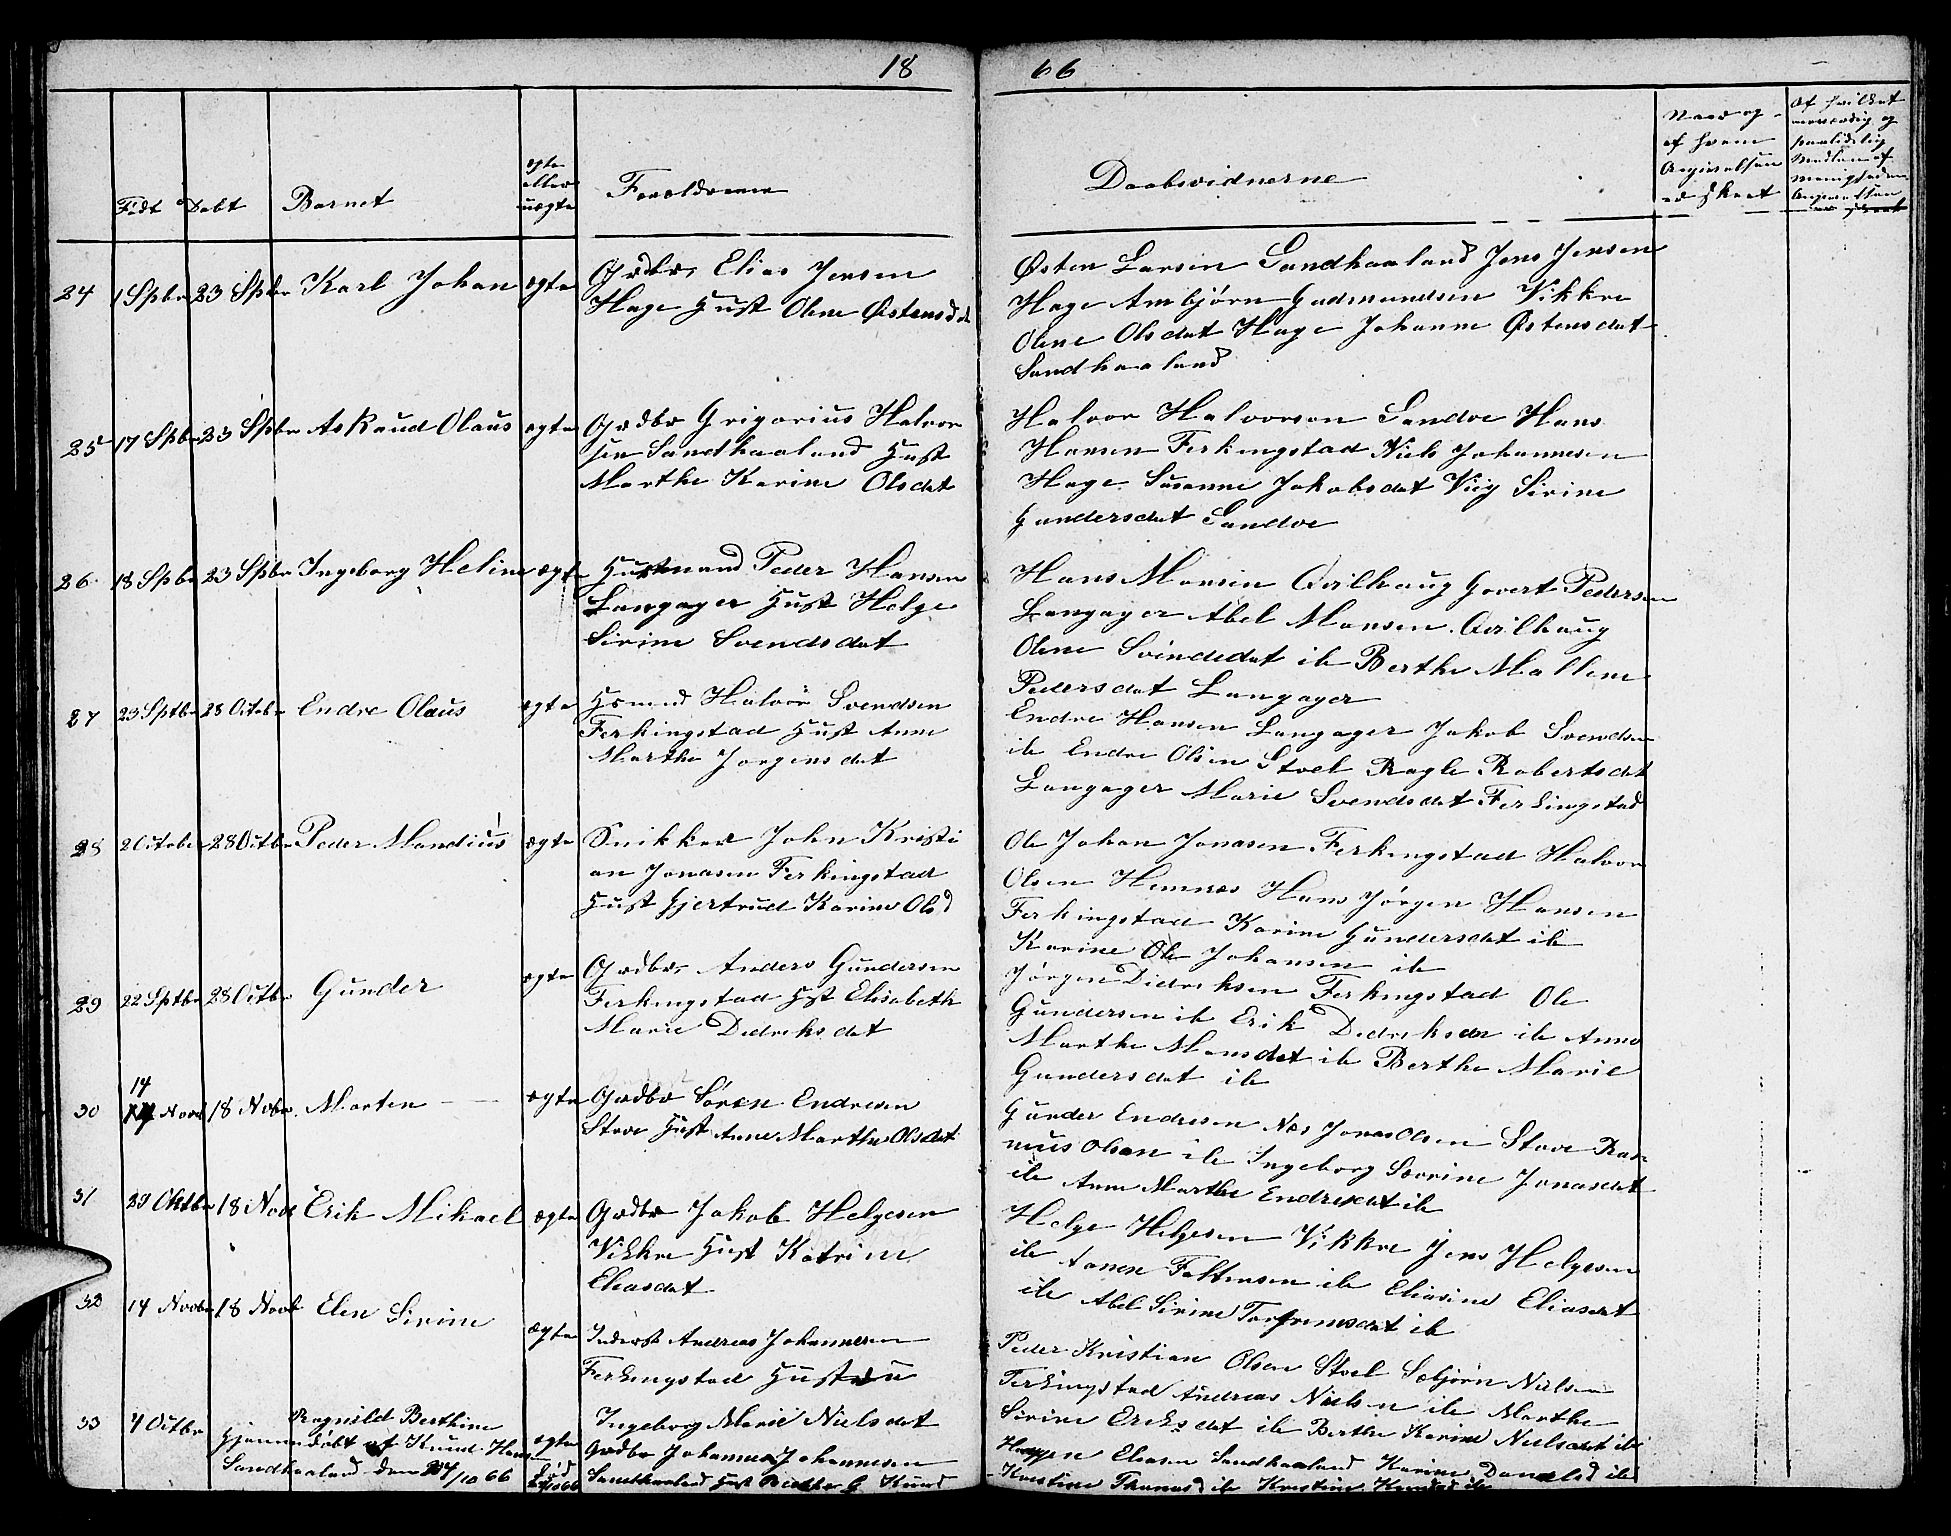 18 66
Født Døbt Barnet ægte eller uægte Forældrene
Daabsvidnerne
Naar og
af hvem
Angivelsen
er skeet
Af hvilket
paalidelig
Medlem af
Menigheden
Angivelsen
er skeet
24 1 Sptbr 23 Sptbr Karl Johan ægte Grdbr Elias Jensen
Hage Hust Olene Østensdt
Østen Larsen Sandhaaland Jens Jensen
Hage Ambjørn Gudmundsen Vikkre
Olene Olsdat Hage Johanne Østensdat
Sandhaaland
25 17 Spbr 23 Spbr Askaud Olaus ægte Grdbr Grigorius Halvor
sen Sandhaaland Hust
Marthe Karine Olsdat
Halvor Halvorson Sandve Hans
Hansen Ferkingstad Niels Johannesen
Hage Susanne Jakobsdat Viig Sirine
Gundersdat Sandve
26 18 Spbr 23 Spbr Ingeborg Heline ægte Husmand Peder Hansen
Langager Hust Helge
Sirine Svendsdat
Hans Monsen Qvilhaug Govert Pedersen
Langager Abel Monsen Qvilhaug
Olene Svendsdat ib Berthe Mallene
Pedersdat Langager
27 23 Sptbr 28 Octobr Endre Olaus ægte Hsmnd Halvor Svendsen
Ferkingstad Hust Anne
Marthe Jorgensdat
Endre Hansen Langager Jakob Svendsen
ib Endre Olsen Stoel Ragle Robertsdat
Langager Marie Svendsdat Ferkingstad
28 2 Octobr 28 Octbr Peder Mandius ægte Snikker John Kristi
an Jonasen Ferkingstad
Hust Gjertrud Karine Olsd
Ole Johan Jonasen Ferkingstad Halvor
Olsen Hemnes Hans Jørgen Hansen
Ferkingstad Karine Gundersdat ib
Karine Ole Johansen ib
29 22 Sptbr 28 Octbr Gunder ægte Grdbr Anders Gundersen
Ferkingstad Hst Elisabeth
Marie Dedreksdat
Jørgen Didreksen Ferkingstad Ole
Gundersen ib Erik Dedreksen ib Anne
Marthe Monsdat ib Berthe Marie
Gundersdat ib
30 14 Novb 18 Novbr Morten ægte Grdbr Sören Endresen
Stave Hust Anne Marthe Olsdat
Gunder Endresen Nes Jonas Olsen Stave Ras
mus Olsen ib Ingeborg Severine Jonasdat
ib Anne Marthe Endresdat ib
31 29 Oktbr 18 Novb Erik Mikael ægte Grdbr Jakob Helgesen
Vikkre Hust Katrine
Eliasdat
Helge Helgesen Vikkre Jens Helgesen
ib Aanen Faltensen ib Eliasine Eliasdat
ib Abel Sirine Torfrensdat ib
32 14 Novbr 18 Novb Elen Sirine ægte Inderst Andreas Johannesen
Ferkingstad Hustru
Ingeborg Marie Nielsdat
Peder Kristian Olsen Stoel Sebjørn Nielsen
Ferkingstad Andreas Nielsen ib Marthe
Sirine Ereksdat ib Berthe Karine Nielsdat ib
33 4 Octbr Ragnild Berthine
Hjemmedøbt af Knud Hans
Sandhaaland den 4/10 66
ægte
Grdbr Johannes Johannesen
Sandhaaland Hust Berthe G Knud
Eliasen Sandhaaland Karine ib
Kristine Thomasd ib Kristine Knudsd ib